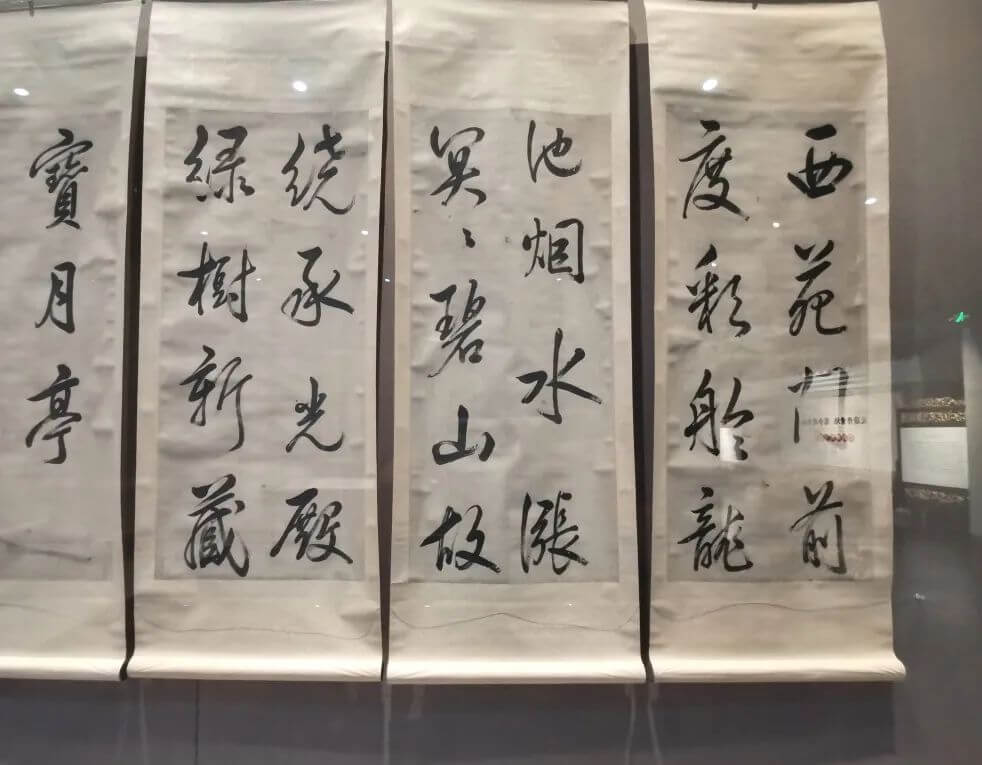 西苑門前
度彩舲龍
池烟水漲
冥〻碧山故
繞承光殿
緑樹新藏
寶月亭